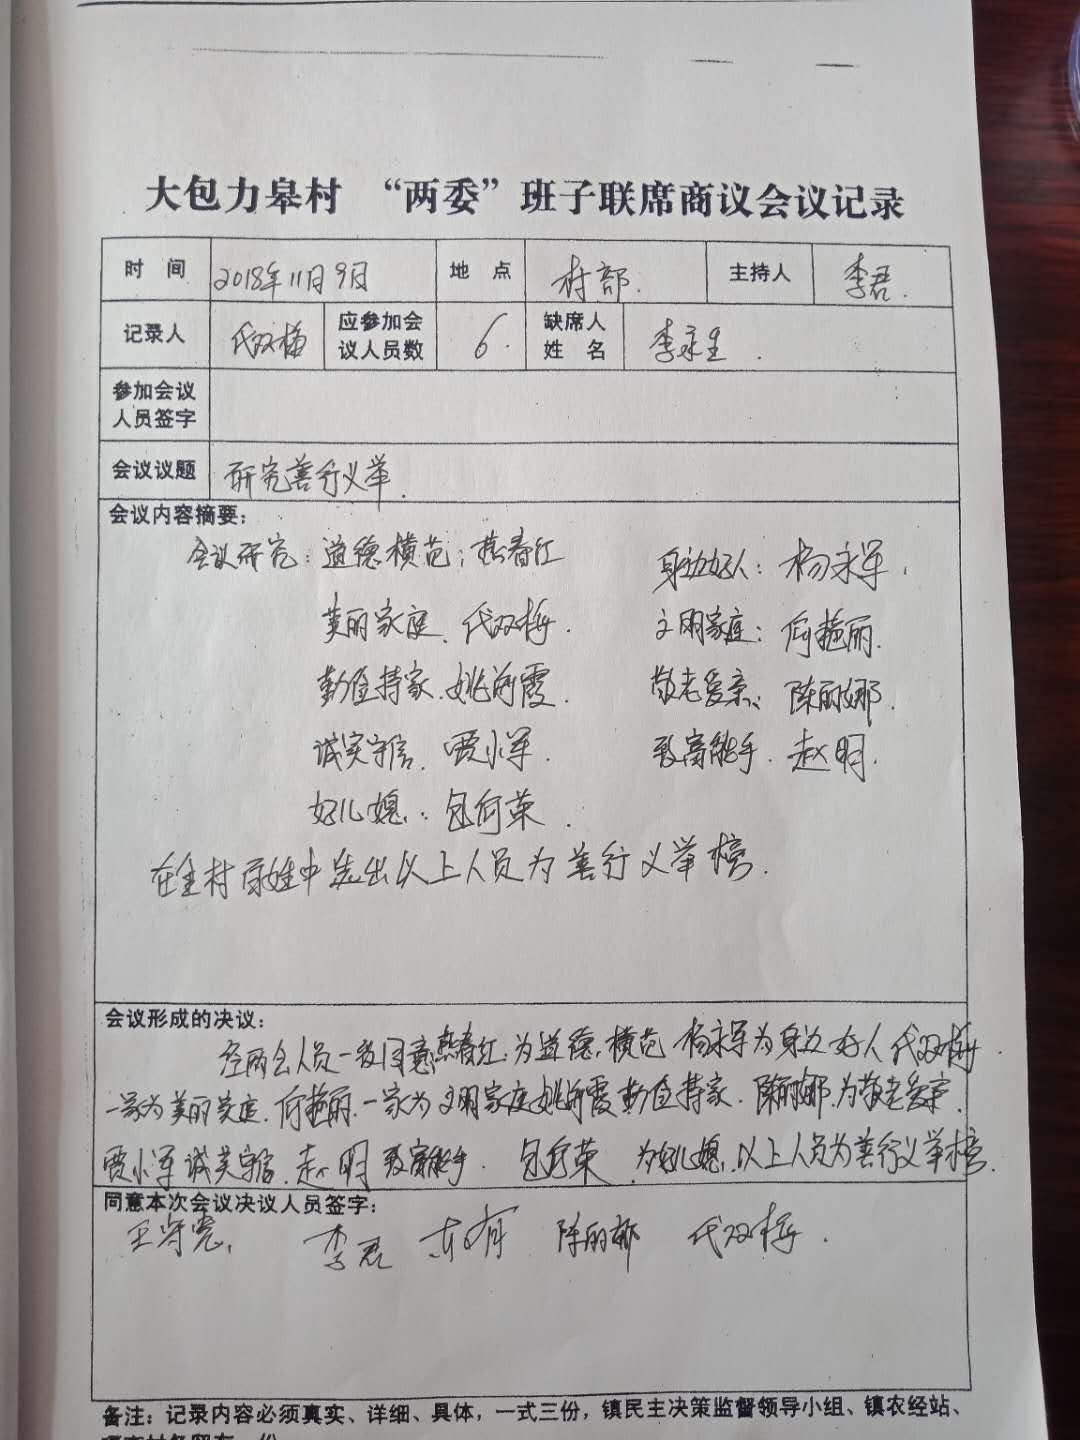 大包力皋村 “两委”班子联席商议会议记录
时 间 2018年11月9日 地 点 村部. 主持人 李君.
记录人 代双梅 应参加会议人员数 6. 缺席人姓 名 李永生.
参加会议人员签字
会议议题 研究善行义举.
会议内容摘要：
会议研究：道德模范； 春红 身边好人：杨永军.
美丽家庭、代双梅. 文明家庭：何艳丽.
勤俭持家、姚 霞. 敬老爱亲：陈丽娜.
诚实守信、贾小军. 致富能手、赵明.
好儿媳：包何荣.
在全村百姓中选出以上人员为善行义举榜.
会议形成的决议：
经两会人员一致同意 春红：为道德模范 杨永军为身边好人 代双梅
一家为美丽家庭. 何艳丽.一家为文明家庭姚 霞勤俭持家. 陈丽娜.为敬老爱亲.
贾小军诚实守信. 赵明致富能手. 包何荣.为好儿媳.以上人员为善行义举榜.
同意本次会议决议人员签字：
王守 李君 有 陈丽娜 代双梅.
备注：记录内容必须真实、详细、具体，一式三份，镇民主决策监督领导小组、镇农经站、